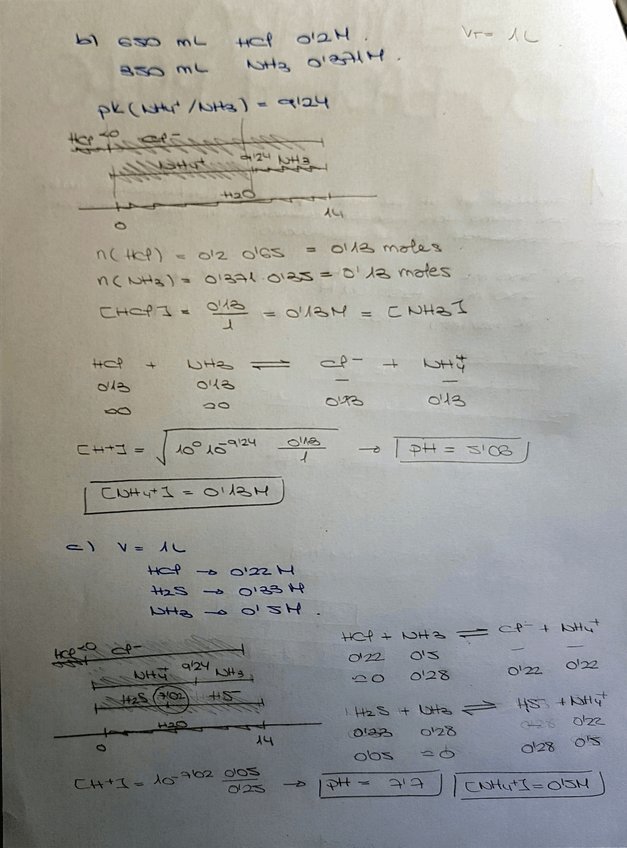 b) 650 mL HCl 0'2M. VT = 1L
350 mL NH3 0'371M.
pK(NH4+/NH3) = 9'24
HCl <0 Cl-
NH4+ 9'24 NH3
H2O
0 14
n(HCl) = 0'2 0'65 = 0'13 moles
n(NH3) = 0'371 · 0'35 = 0'13 moles
[HCl] = 0'13/1 = 0'13M = [NH3]
HCl + NH3 ⇌ Cl- + NH4+
0'13 0'13 - -
≃0 ≃0 0'13 0'13
[H+] = √(10^0 10^-9'24 0'13/1) → pH = 5'08
[NH4+] = 0'13M
c) V = 1L
HCl → 0'22M
H2S → 0'33M
NH3 → 0'5M.
HCl <0 Cl-
NH4+ 9'24 NH3
H2S 7'02 HS-
H2O
0 14
HCl + NH3 ⇌ Cl- + NH4+
0'22 0'5 - -
≃0 0'28 0'22 0'22
H2S + NH3 ⇌ HS- + NH4+
0'33 0'28 0'22
0'05 ≃0 0'28 0'5
[H+] = 10^-7'02 0'05/0'25 → pH = 7'7 [NH4+] = 0'5M